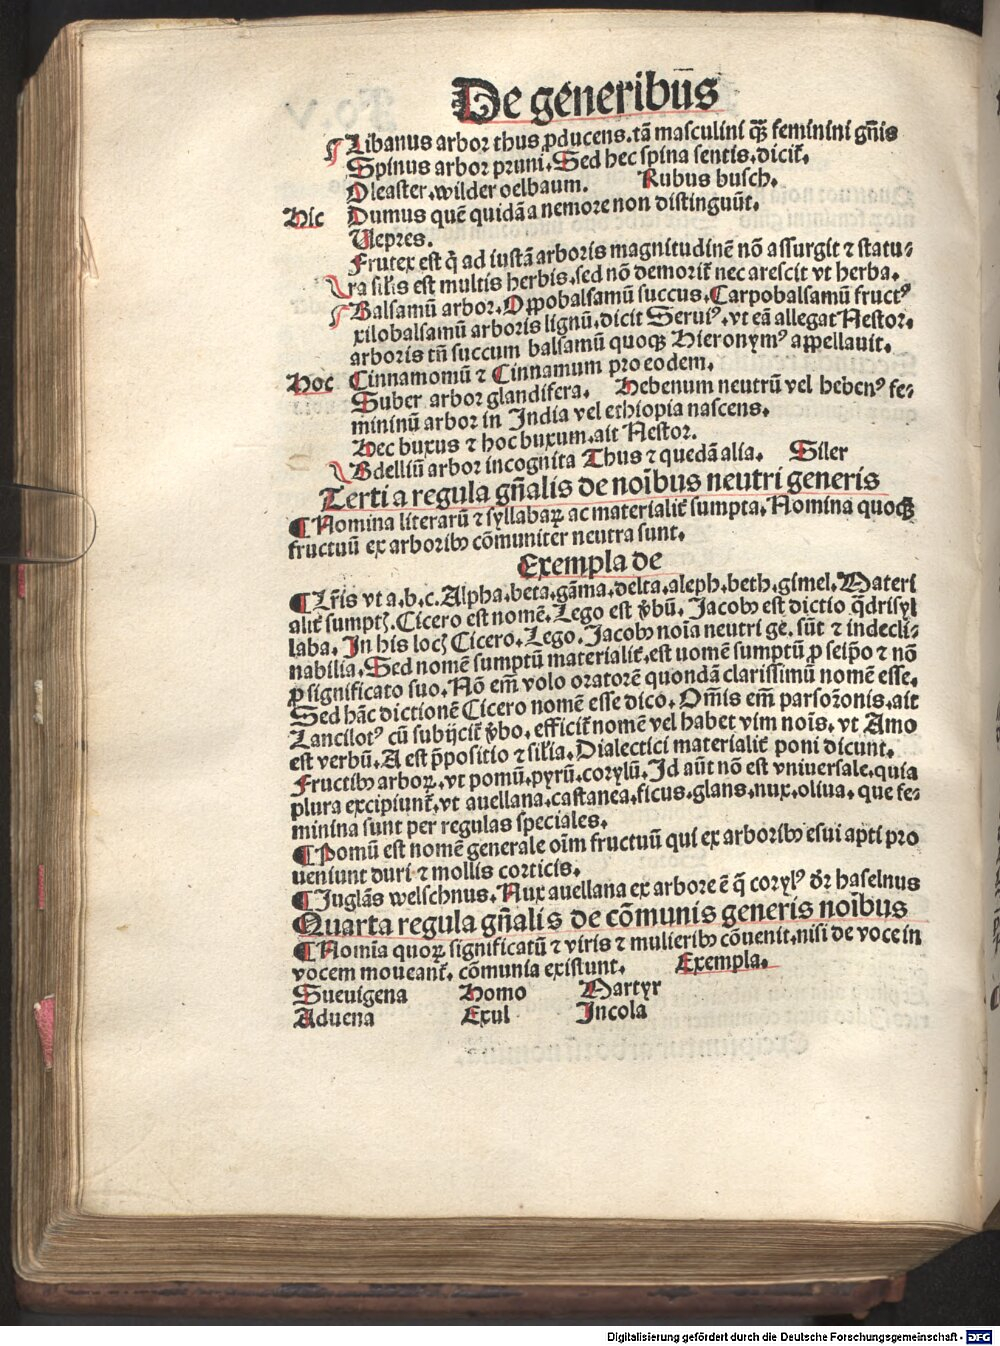 De generibūs
Libanus arbor thus ꝓducens.tā masculini qꝫ feminini gn̄is
Spinus arbor pruni.Sed hec spina sentis.dicit᷑.
Oleaster.wilder oelbaum. Rubus busch.
Hic Dumus quē quidā a nemore non distinguūt.
Vepres.
Frutex est q̇ ad iustā arboris magnitudinē nō assurgit ⁊ statu⸗
ra sil̓is est multis herbis.sed nō demorit᷑ nec arescit vt herba.
Balsamū arbor.Opobalsamū succus.Carpobalsamū fructꝰ
xilobalsamū arboris lignū.dicit Seruiꝰ.vt eā allegat Nestor.
arboris tn̄ succum balsamū quoqꝫ Hieronymꝰ appellauit.
Hoc Cinnamomū ⁊ Cinnamum pro eodem.
Suber arbor glandifera. Hebenum neutrū vel hebenꝰ fe⸗
mininū arbor in India vel ethiopia nascens.
Hec buxus ⁊ hoc buxum.ait Nestor.
Bdelliū arbor incognita Thus ⁊ quedā alia. Siler
Tertia regula gn̄alis de noībus neutri generis
¶ Nomina literarū ⁊ syllabaꝝ ac materialit᷑ sumpta.Nomina quoqꝫ
fructuū ex arboribꝰ cōmuniter neutra sunt.
Exempla de
¶ Lr̄is vt a.b.c.Alpha.beta.gāma.delta.aleph.beth.gimel.Materi
alit᷑ sumptꝭ.Cicero est nomē.Lego est v̄bū.Jacobꝰ est dictio q̄drisyl
laba.In his locꝭ Cicero.Lego.Jacobꝰ noīa neutri ge. sūt ⁊ indecli⸗
nabilia.Sed nomē sumptū materialit᷑.est uomē sumptū ꝓ seip̄o ⁊ nō
ꝓ significato suo.Nō em̄ volo oratorē quondā clarissimū nomē esse.
Sed hāc dictionē Cicero nomē esse dico.Om̄is em̄ pars orōnis.ait
Lancilotꝰ cū subijcit᷑ v̄bo.efficit᷑ nomē vel habet vim noīs.vt Amo
est verbū.A est p̄positio ⁊ sil̓ia.Dialectici materialit᷑ poni dicunt.
Fructibꝰ arboꝝ.vt pomū.pyrū.corylū.Id aūt nō est vniuersale.quia
plura excipiunt᷑.vt auellana.castanea.ficus.glans.nux.oliua. que fe⸗
minina sunt per regulas speciales.
¶ Pomū est nomē generale oīm fructuū qui ex arboribꝰ esui apti pro
ueniunt duri ⁊ mollis corticis.
¶ Juglās welschnus.Nux auellana ex arbore ē q̄ corylꝰ dr̄ haselnus
Quarta regula gn̄alis de cōmunis generis noībus
¶ Nomīa quoꝝ significatū ⁊ viris ⁊ mulieribꝰ cōuenit.nisi de voce in
vocem moueant᷑. cōmunia existunt. Exempla.
Sueuigena Homo Martyr
Aduena Exul Incola
Digitalisierung gefördert durch die Deutsche Forschungsgemeinschaft - DFG